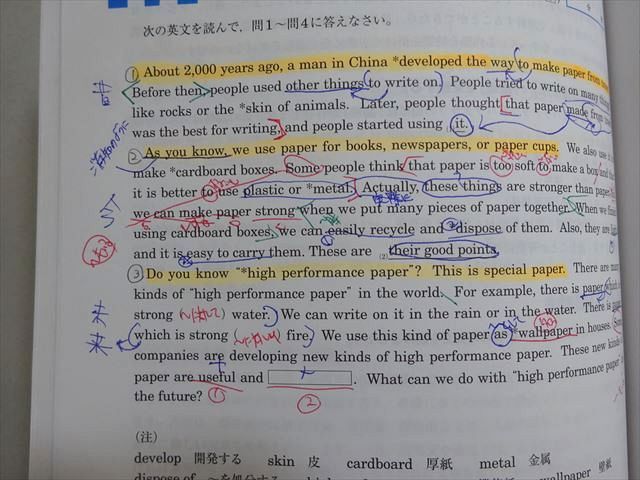 次の英文を読んで，問1～問4に答えなさい。
① About 2,000 years ago, a man in China *developed the way to make paper from
昔
Before then, people used other things to write on. People tried to write on many things
like rocks or the *skin of animals. Later, people thought that paper made from
was the best for writing, and people started using (1) it.
② As you know, we use paper for books, newspapers, or paper cups. We also use
make *cardboard boxes. Some people think that paper is too soft to make a box and
it is better to use plastic or *metal. Actually, these things are stronger than paper.
we can make paper strong when we put many pieces of paper together. When we
using cardboard boxes, we can easily recycle and *dispose of them. Also, they are
and it is easy to carry them. These are (2) their good points.
③ Do you know "*high performance paper"? This is special paper. There are many
kinds of "high performance paper" in the world. For example, there is paper which
strong water. We can write on it in the rain or in the water. There is
未
来
which is strong fire. We use this kind of paper as *wallpaper in houses.
companies are developing new kinds of high performance paper. These new kinds
paper are useful and . What can we do with "high performance paper"
the future? ① ②
(注)
develop 開発する skin 皮 cardboard 厚紙 metal 金属
dispose of wallpaper 壁紙